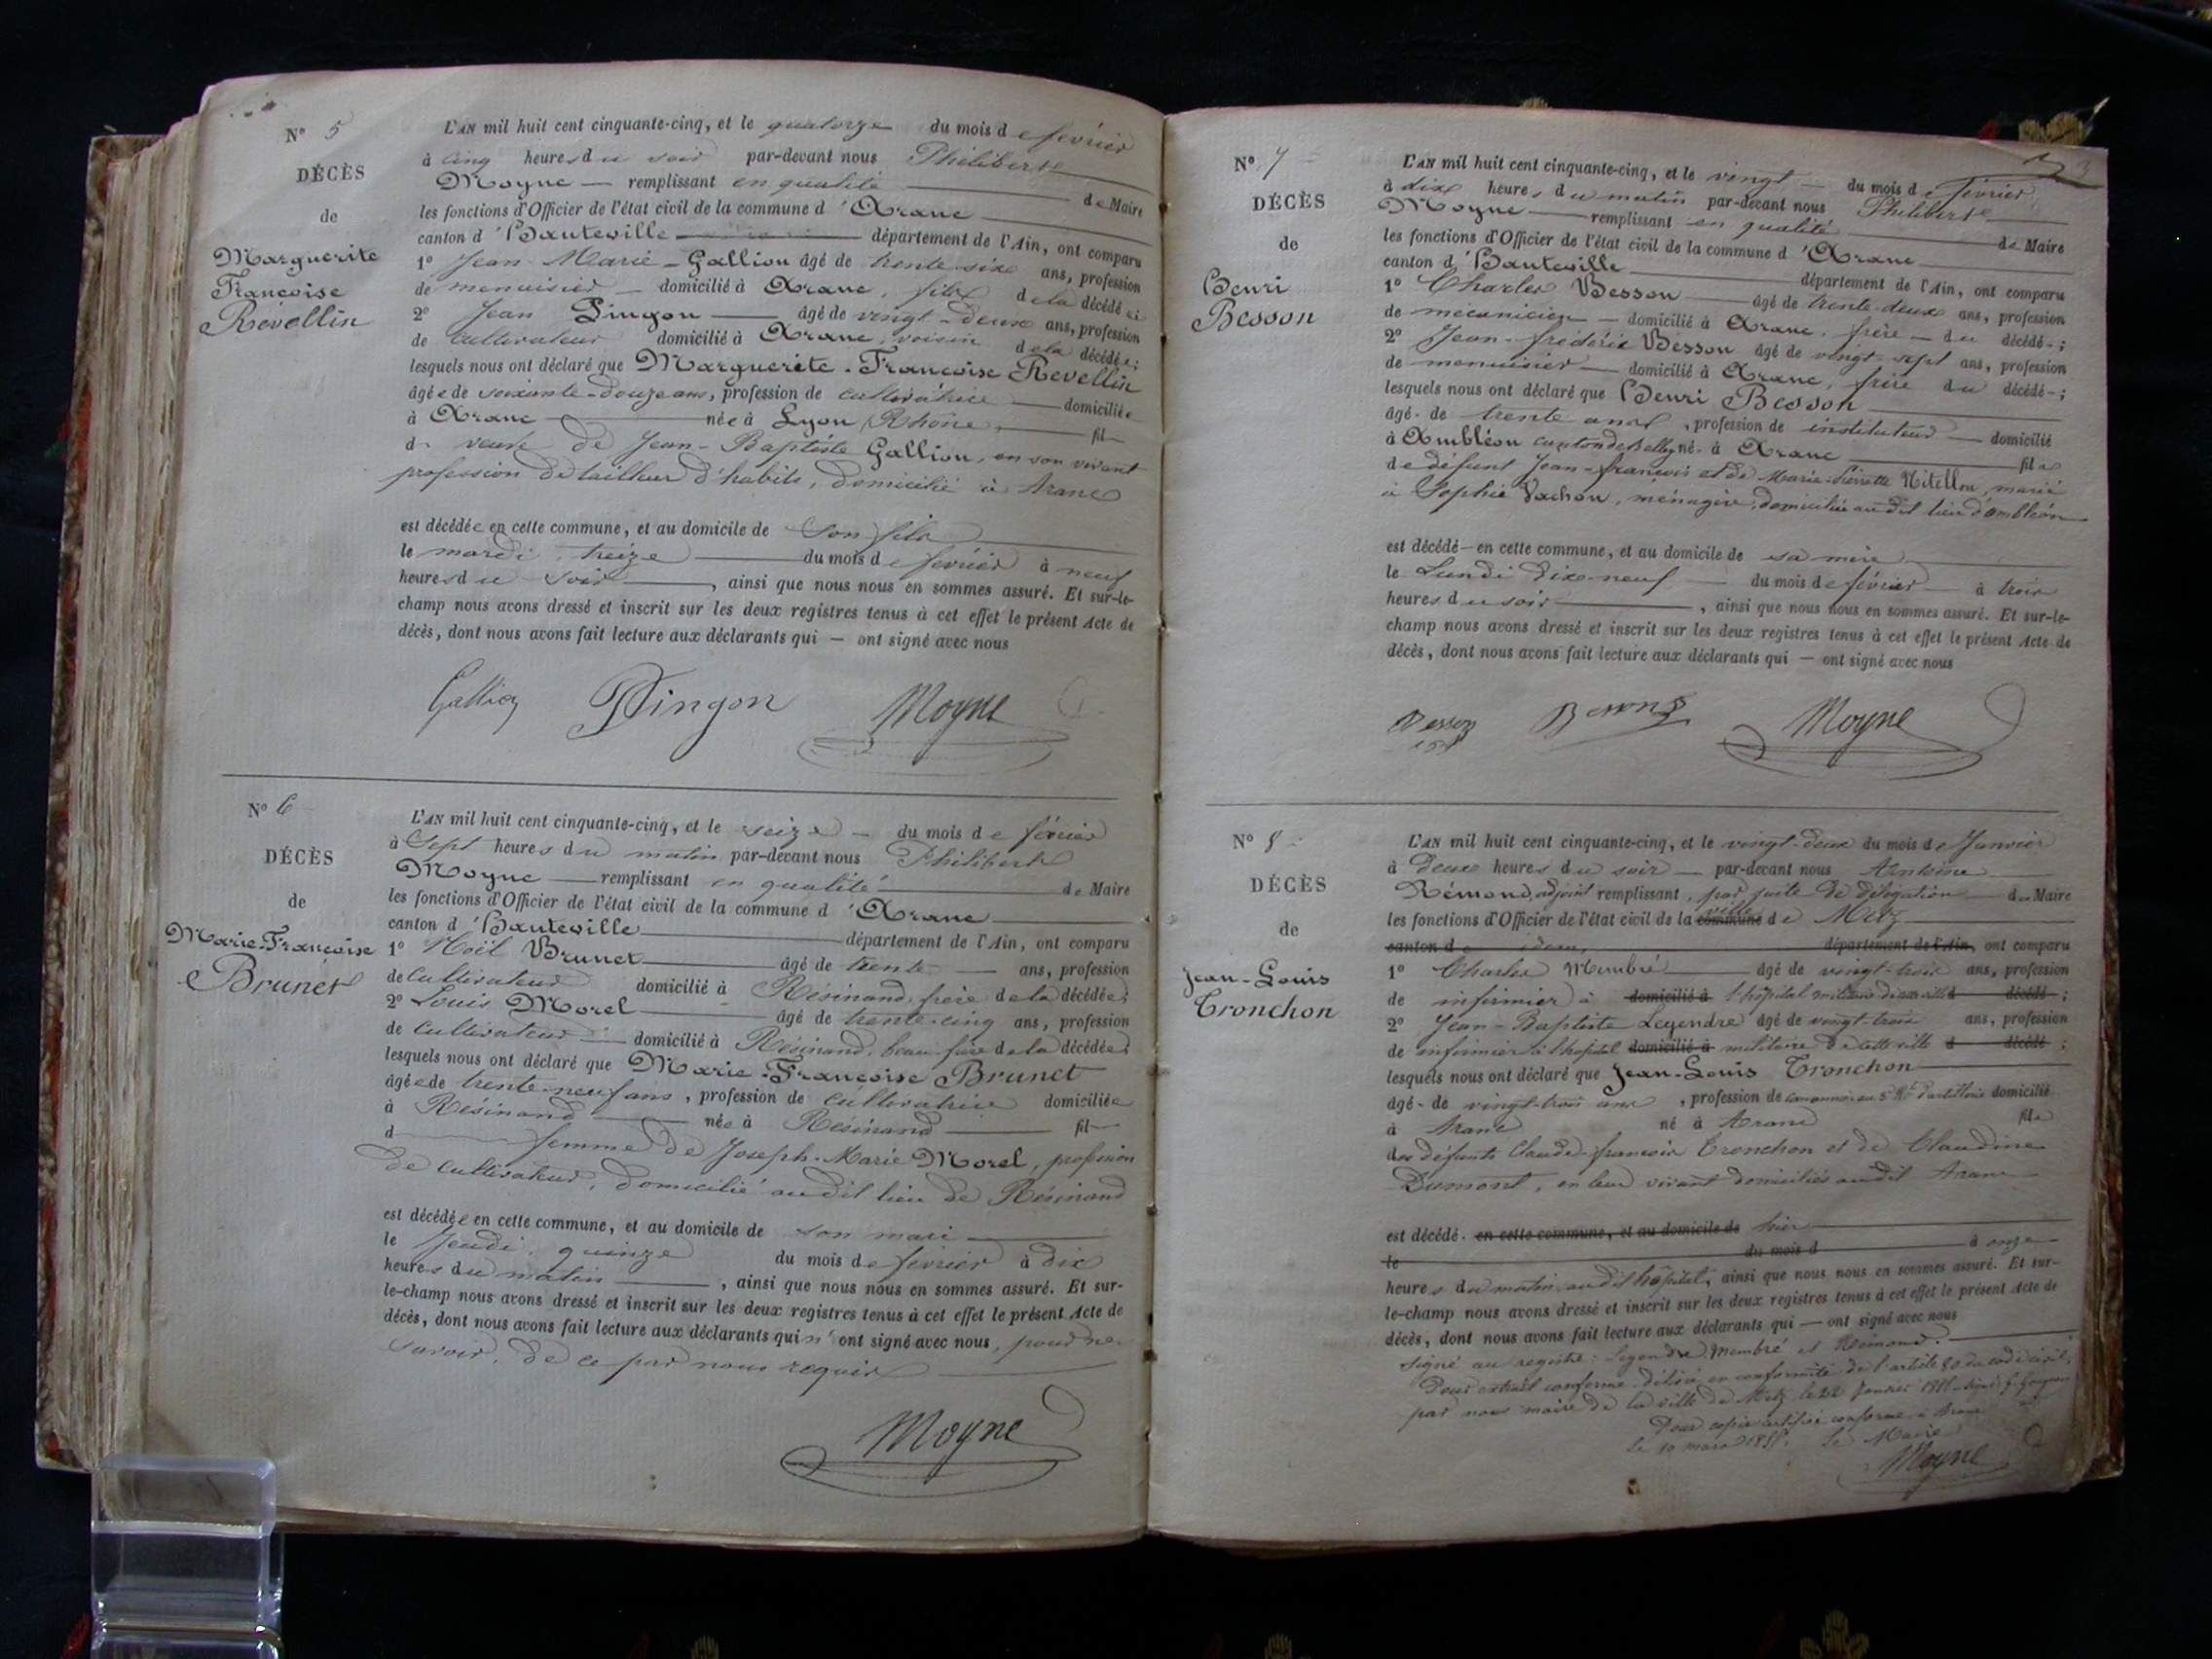 N° 5
DÉCÈS
de
Marguerite
Françoise
Revellin
L'AN mil huit cent cinquante-cinq, et le quatorze du mois de février
à cinq heures du soir par-devant nous Philibert
Moyne — remplissant en qualité de Maire
les fonctions d'Officier de l'état civil de la commune d'Aranc
canton d'Hauteville département de l'Ain, ont comparu
1° Jean-Marie Gallion âgé de trente-six ans, profession
de menuisier — domicilié à Aranc, fils de la décédée
2° Jean Pingon — âgé de vingt-deux ans, profession
de cultivateur domicilié à Aranc, voisin de la décédée;
lesquels nous ont déclaré que Marguerite-Françoise Revellin
âgée de soixante-douze ans, profession de cultivatrice — domiciliée
à Aranc — née à Lyon (Rhône) — fil-
d- veuve de Jean-Baptiste Gallion, en son vivant
profession de tailleur d'habits, domicilié à Aranc
est décédée en cette commune, et au domicile de son fils
le mardi, treize du mois de février à neuf
heures du soir —, ainsi que nous nous en sommes assuré. Et sur-le-
champ nous avons dressé et inscrit sur les deux registres tenus à cet effet le présent Acte de
décès, dont nous avons fait lecture aux déclarants qui — ont signé avec nous
Gallion Pingon Moyne
N° 6
DÉCÈS
de
Marie-Françoise
Brunet
L'AN mil huit cent cinquante-cinq, et le seize — du mois de février
à sept heures du matin par-devant nous Philibert
Moyne — remplissant en qualité de Maire
les fonctions d'Officier de l'état civil de la commune d'Aranc
canton d'Hauteville département de l'Ain, ont comparu
1° Noël Brunet — âgé de trente — ans, profession
de cultivateur domicilié à Résinand, frère de la décédée;
2° Louis Morel — âgé de trente-cinq ans, profession
de cultivateur — domicilié à Résinand, beau-frère de la décédée;
lesquels nous ont déclaré que Marie-Françoise Brunet
âgée de trente-neuf ans, profession de cultivatrice domiciliée
à Résinand — née à Résinand — fil-
d — femme de Joseph-Marie Morel, profession
de cultivateur, domicilié audit lieu de Résinand
est décédée en cette commune, et au domicile de son mari
le jeudi, quinze du mois de février à dix
heures du matin —, ainsi que nous nous en sommes assuré. Et sur-
le-champ nous avons dressé et inscrit sur les deux registres tenus à cet effet le présent Acte de
décès, dont nous avons fait lecture aux déclarants qui n'ont signé avec nous, pour ne
savoir, de ce par nous requis
Moyne
3
N° 7
DÉCÈS
de
Henri
Besson
L'AN mil huit cent cinquante-cinq, et le vingt — du mois de février
à dix heures du matin par-devant nous Philibert
Moyne — remplissant en qualité de Maire
les fonctions d'Officier de l'état civil de la commune d'Aranc
canton d'Hauteville département de l'Ain, ont comparu
1° Charles Besson — âgé de trente-deux ans, profession
de mécanicien — domicilié à Aranc, frère — du décédé-;
2° Jean-frédéric Besson âgé de vingt-sept ans, profession
de menuisier — domicilié à Aranc, frère du décédé-;
lesquels nous ont déclaré que Henri Besson
âgé- de trente ans, profession de instituteur — domicilié
à Ambléon canton de Belley né- à Aranc — fils
de défunt Jean-françois et de Marie-Pierrette Nitellon, marié
à Sophie Vachon, ménagère, domiciliée audit lieu d'Ambléon
est décédé — en cette commune, et au domicile de sa mère
le Lundi dix-neuf — du mois de février — à trois
heures du soir —, ainsi que nous nous en sommes assuré. Et sur-le-
champ nous avons dressé et inscrit sur les deux registres tenus à cet effet le présent Acte de
décès, dont nous avons fait lecture aux déclarants qui — ont signé avec nous
Besson Besson Moyne
N° 8
DÉCÈS
de
Jean-Louis
Tronchon
L'AN mil huit cent cinquante-cinq, et le vingt-deux du mois de Janvier
à deux heures du soir — par-devant nous Antoine
Rémond, adjoint remplissant, par suite de délégation du Maire
les fonctions d'Officier de l'état civil de la commune ville de Metz
canton de idem département de l'Ain, ont comparu
1° Charles Membré — âgé de vingt-trois ans, profession
de infirmier à domicilié à l'hôpital militaire de cette ville d décédé;
2° Jean-Baptiste Legendre âgé de vingt-trois ans, profession
de infirmier à l'hôpital domicilié à militaire de cette ville d décédé;
lesquels nous ont déclaré que Jean-Louis Tronchon
âgé- de vingt-trois ans, profession de canonnier au 5e Rt d'artillerie domicilié
à Aranc né à Aranc fils
des défunts Claude-françois Tronchon et de Claudine
Dumont, en leur vivant domiciliés audit Aranc
est décédé- en cette commune, et au domicile de hier
le du mois d à onze
heures du matin, audit hôpital, ainsi que nous nous en sommes assuré. Et sur-
le-champ nous avons dressé et inscrit sur les deux registres tenus à cet effet le présent Acte de
décès, dont nous avons fait lecture aux déclarants qui — ont signé avec nous
Signé au registre: Legendre, Membré et Rémond.
Pour extrait conforme délivré en conformité de l'article 80 du code civil,
par nous maire de la ville de Metz, le 22 Janvier 1855. Signé
Pour copie certifiée conforme à Aranc
le 10 mars 1855. Le Maire
Moyne